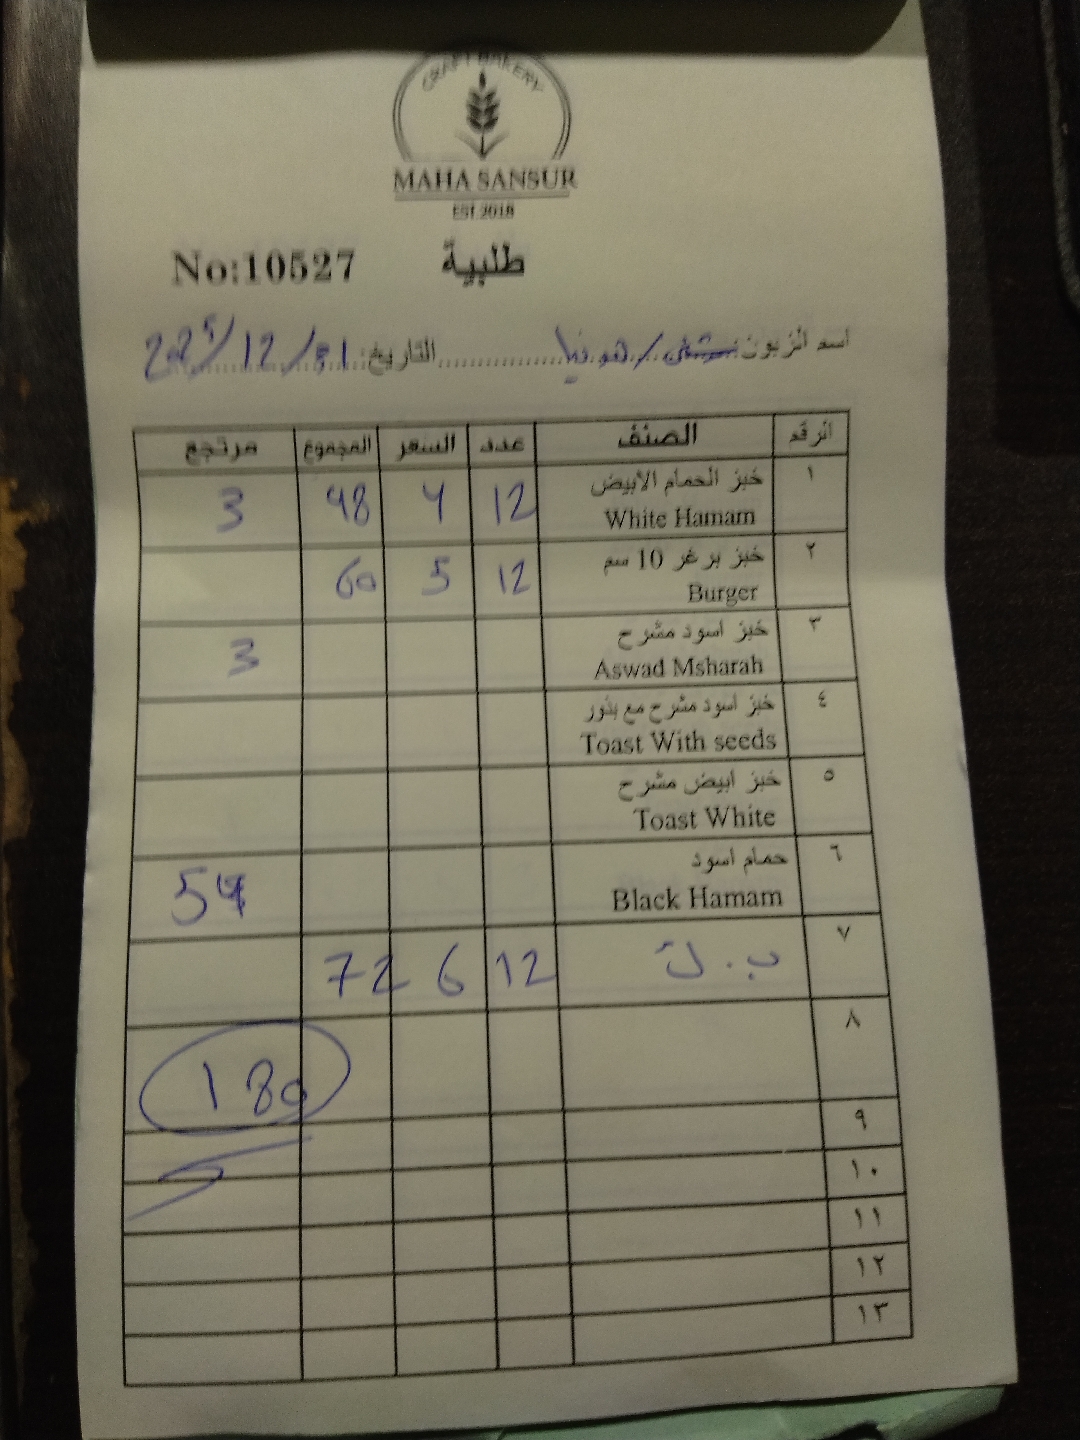 CRAFT BAKERY
MAHA SANSUR
EST 2018
No:10527 طلبية
اسم الزبون: / هونيا التاريخ: 2025/12/31
الرقم الصنف عدد السعر المجموع مرتجع
١ خبز الحمام الابيض 12 4 48 3
White Hamam
٢ خبز برغر 10 سم 12 5 60
Burger
٣ خبز اسود مشرح 3
Aswad Msharah
٤ خبز اسود مشرح مع بذور
Toast With seeds
٥ خبز ابيض مشرح
Toast White
٦ حمام اسود
Black Hamam
٧ ب.ك 12 6 72
٨ 180
٩
١٠
١١
١٢
١٣